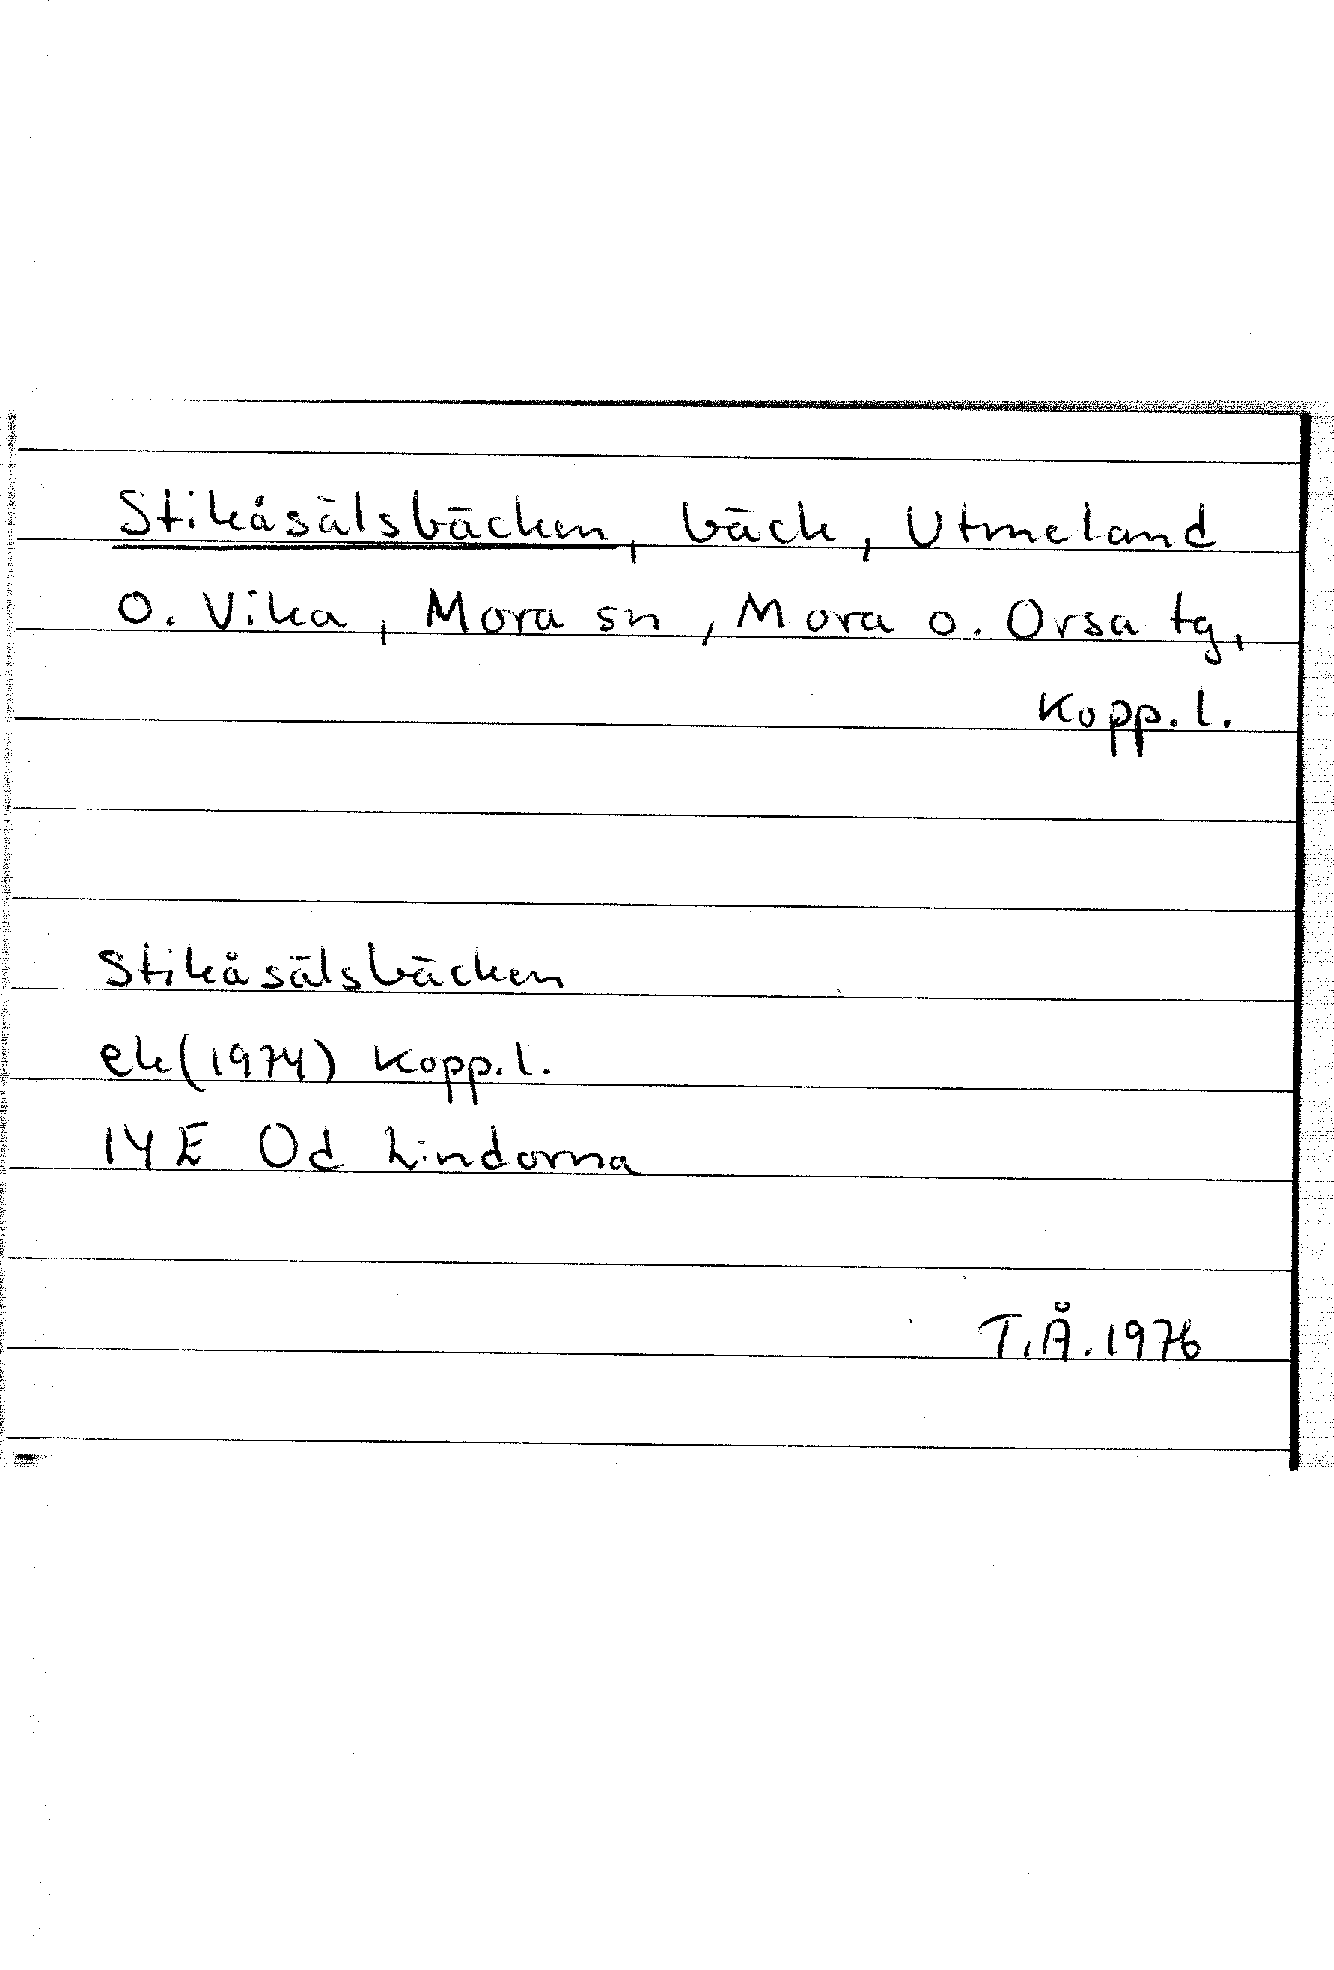 Stikåsälsbäcken, bäck, Utmeland
o. Vika, Mora sn, Mora o. Orsa tg,
Kopp. l.
Stikåsälsbäcken
ek(1974) Kopp. l.
14E 0d Lindorna
T.Å. 1976